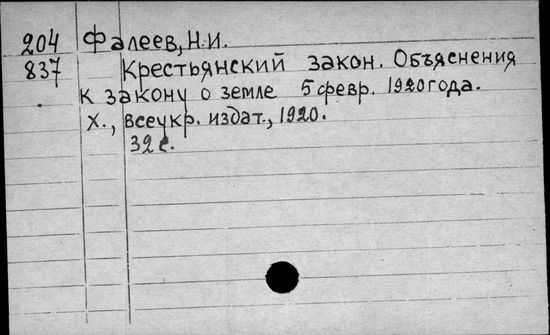 204 Фалеев, Н.И.
837 Крестьянский закон. Объяснения
к закону о земле 5 февр. 1920 года.
Х., всеукр. издат., 1920.
32 с.